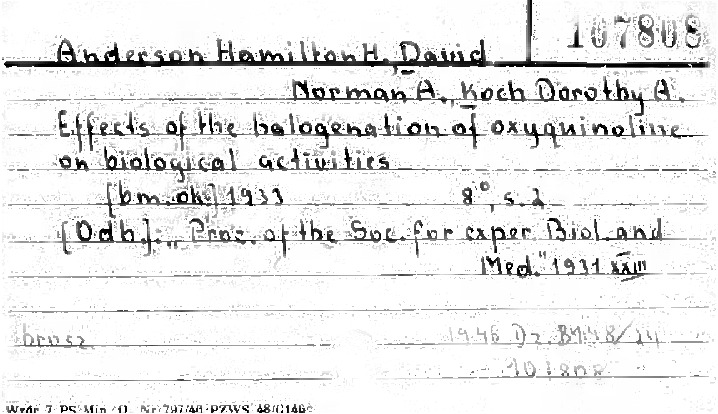 107808
Anderson Hamilton H., David
Norman A., Koch Dorothy A.
Effects of the halogenation of oxyquinoline
on biological activities
[bm. ok.] 1933 8°, s. 2
[Odb.]: „Proc. of the Soc. for exper. Biol. and
Med." 1931 XXIII
brosz.
1946 Dz. B 1148/24
107808
Wzór 7 PS Min. O. Nr 797/46 PZWS 48/G146